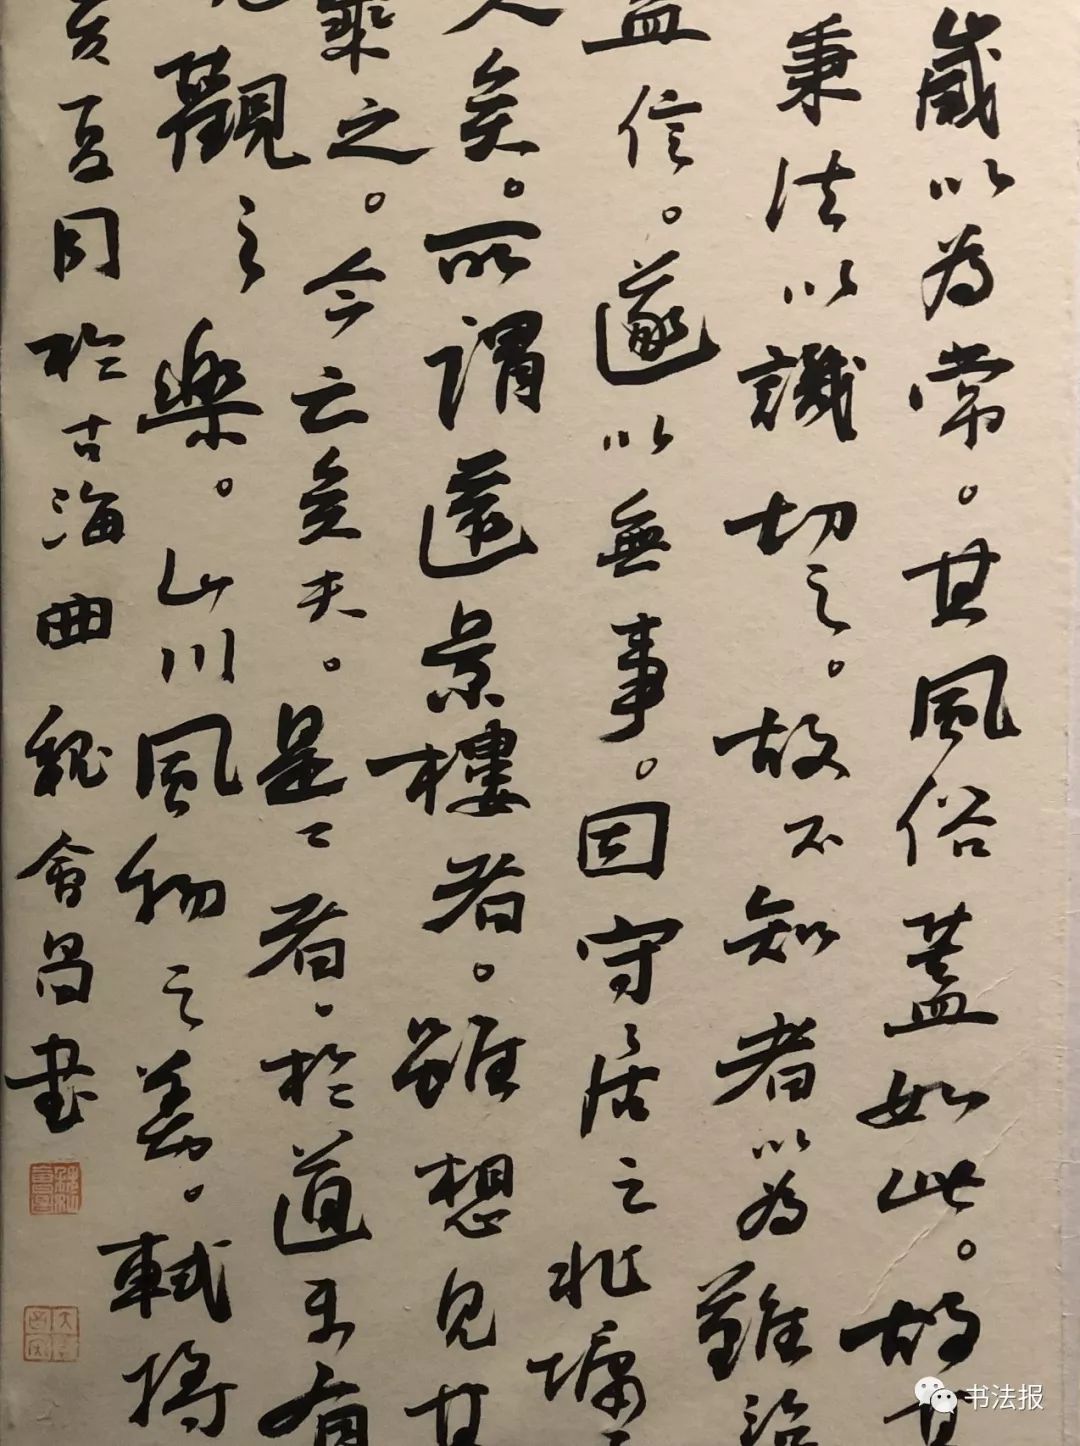 歲以為常。其風俗蓋如此。故其
秉法以譏切之。故不知者以為難治
益信。遂以無事。因守居之北墉
人矣。所謂遠景樓者。雖想見其
乘之。今亡矣夫。是二者。於道未有
觀之樂。山川風物之美。軾將
亥夏月於古海曲魏會昌書
书法报